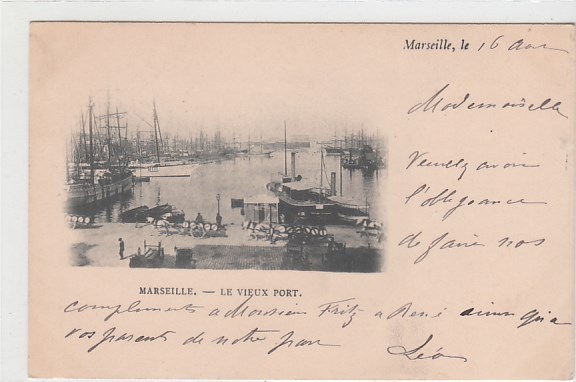 Marseille, le 16
Mademoiselle
Veuillez avoir
l'obligeance
de faire nos
MARSEILLE. — LE VIEUX PORT.
compliments a Monsieur Fritz a René ainsi qu'a
vos parents de notre part
Léon